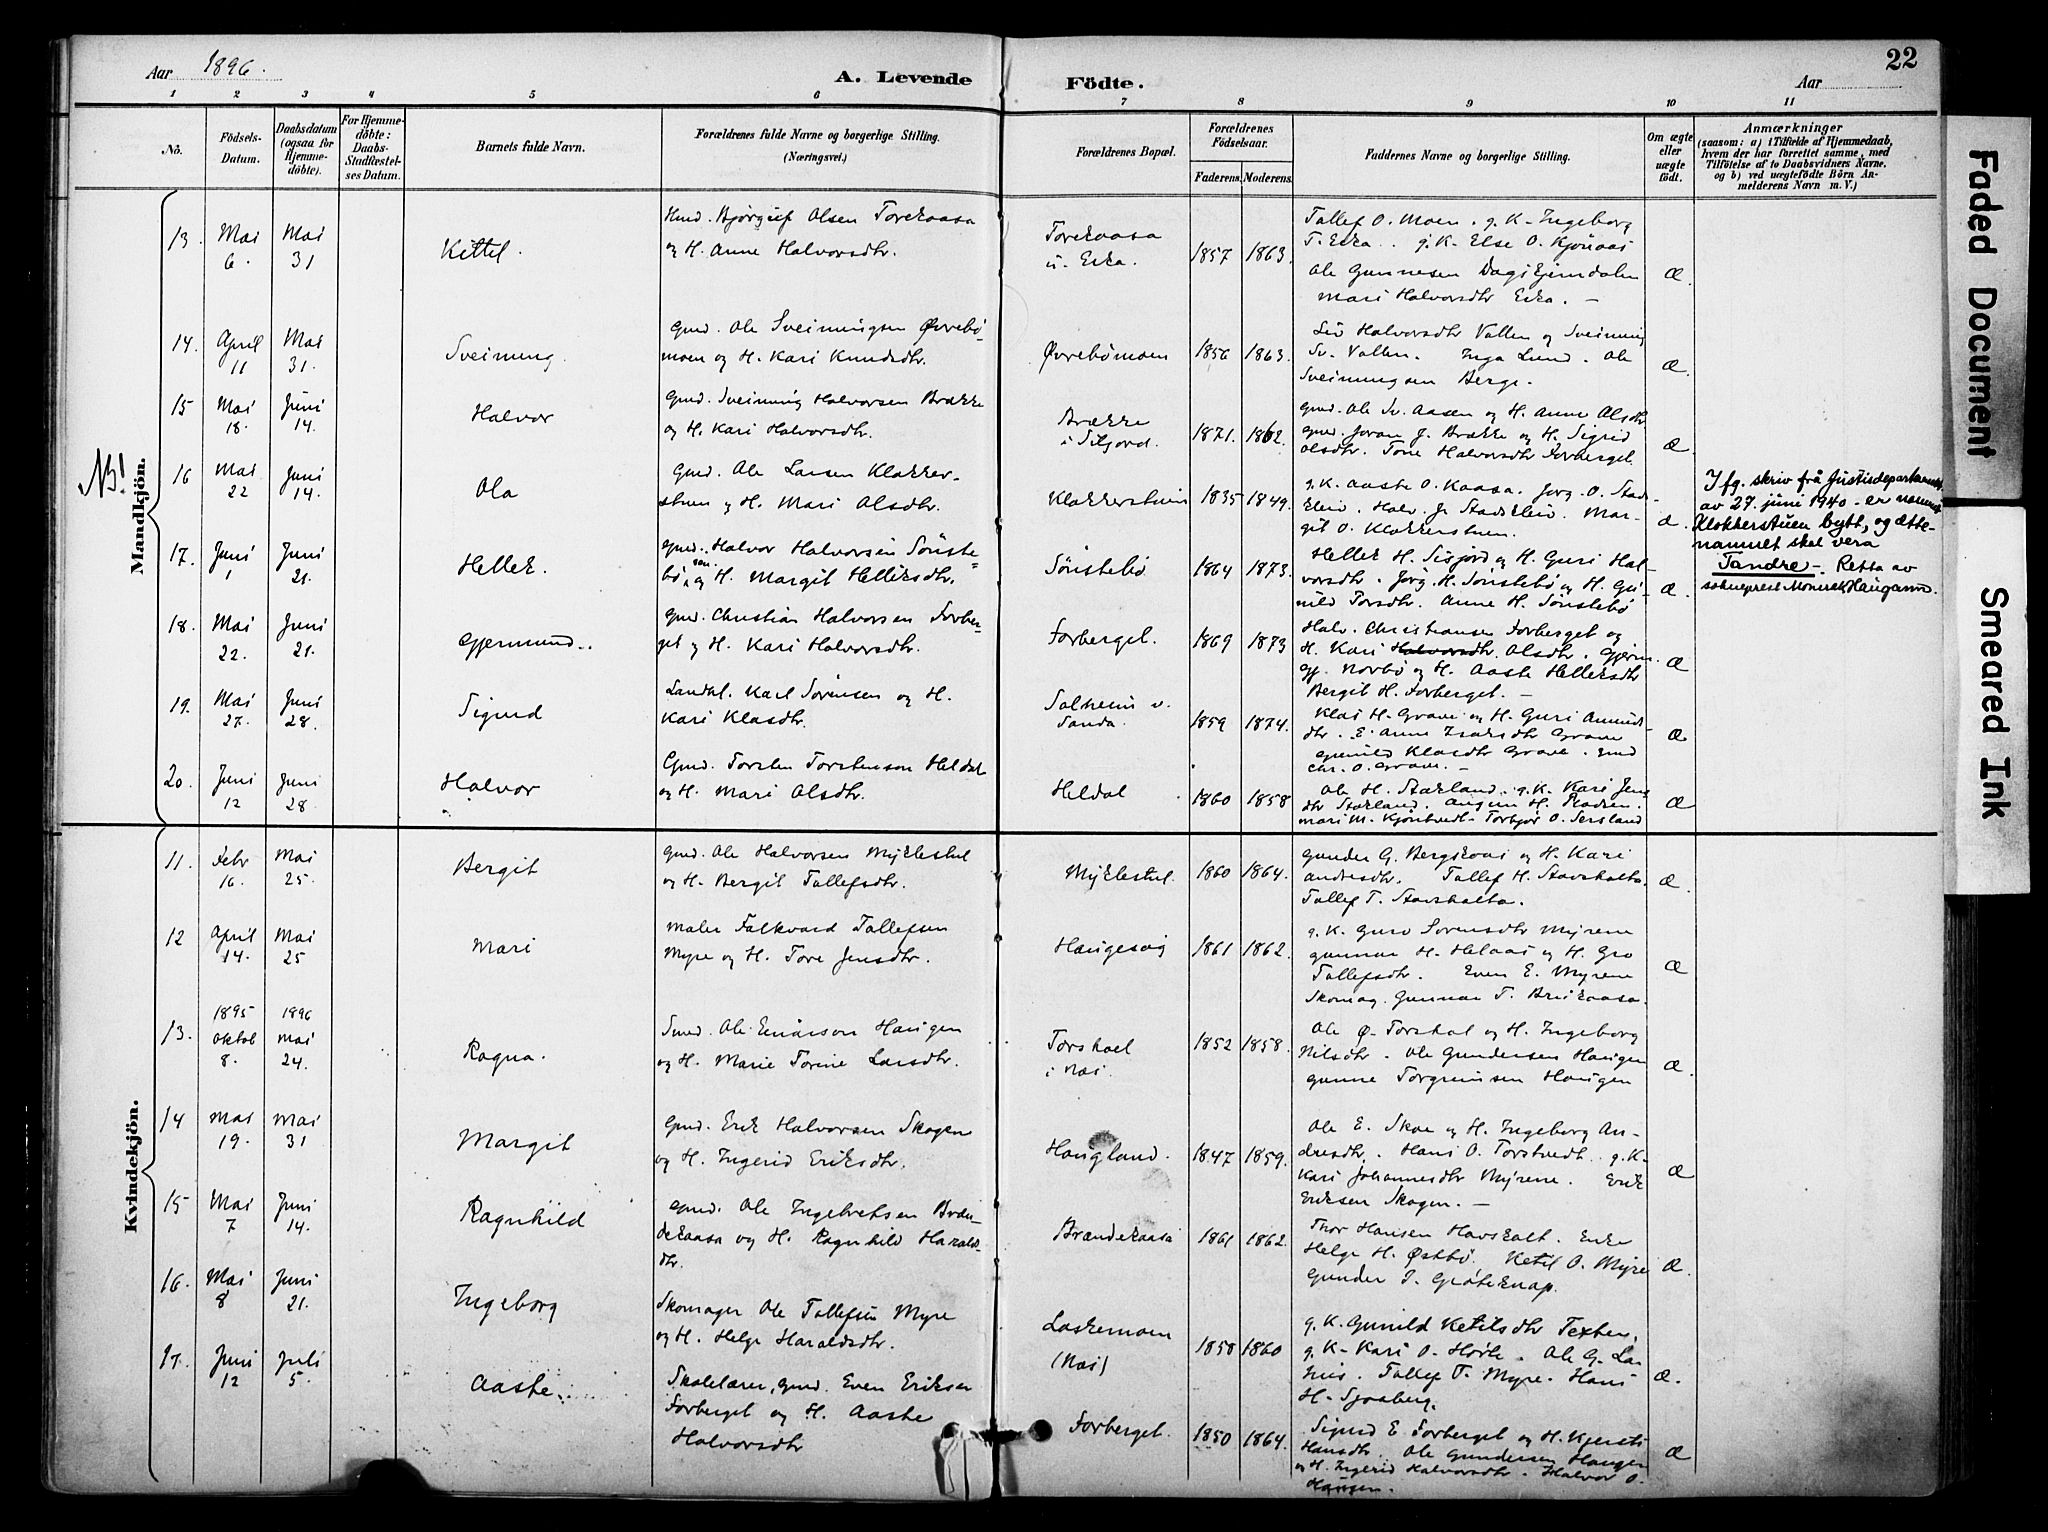 Aar 1896.
A. Levende Födte.
Aar
22
1 2 3 4 5 6 7 8 9 10 11
No.
Födsels-Datum.
Daabsdatum (ogsaa for Hjemmedöbte).
For Hjemmedöbte: Daabs-Stadfæstelses Datum.
Barnets fulde Navn.
Forældrenes fulde Navne og borgerlige Stilling. (Næringsvei.)
Forældrenes Bopæl.
Forældrenes Födselsaar.
Faderens. Moderens.
Faddernes Navne og borgerlige Stilling.
Om ægte eller uægte födt.
Anmærkninger
(saasom: a) i Tilfælde af Hjemmedaab,
hvem der har forrettet samme, med
Tilföielse af to Daabsvidners Navne.
og b) ved uægtefödte Börn An-
melderens Navn m. V.)
Mandkjön.
NB!
13. Mai 6. Mai 31
Kittel.
Hmd. Bjørguf Olsen Torekaasa
og H. Anne Halvorsdtr.
Torekaasa
1857 1863.
Tallef O. Moen. g. K. Ingeborg
g. K. Else O. Kjønaas
Ole Gunnesen
Mari Halvorsdtr
Æ.
14. April 11 Mai 31.
Sveinung.
Gmd. Ole Sveinungsen Øvrebø-
moen og H. Kari Knudsdtr.
Øvrebømoen 1856 1863.
Liv Halvorsdtr Vallen og Sveinung
Sv. Vallen. Inga Lund. Ole
Sveinungsen Berge.
Æ.
15 Mai 18. Juni 14.
Halvor
Gmd. Sveinung Halvorsen Brække
og H. Kari Halvorsdtr.
Brække
i Siljord.
1871. 1862.
Gmd. Ole Sv. Aasen og H. Anne Olsdtr
gmd. Joran J. Brække og H. Sigrid
Olsdtr. Tone Halvorsdtr Forberget
Æ.
16 Mai 22 Juni 14.
Ola
Gmd. Ole Larsen Klokker-
stuen og H. Mari Olsdtr.
Klokkerstuen 1835 1849.
g. K. Aaste O. Kaasa. Jørg. O. Stads-
kleiv. Halv. J. Stadskleiv. Mar-
git O. Klokkerstuen.
Æ.
Ifg. skriv frå Justisdepartementet
av 27. juni 1940 er
Klokkerstuen bytt, og ætte-
namnet skal vera
Tandre. Retta av
sokneprest Haugann.
17. Juni 1 Juni 21.
Hellek.
Gmd. Halvor Halvorsen Sønste-
bø og H. Margit Helliksdtr.
Sønstebø 1864 1873.
Hellek H. Sisjord og H. Guri Hal-
vorsdtr. Jørg. H. Sønstebø og H. Gu-
nild Torsdtr. Anne H. Sønstebø
Æ.
18. Mai 22. Juni 21.
Gjermund.
Gmd. Christian Halvorsen Forber-
get og H. Kari Halvorsdtr.
Forberget. 1869 1873
Halv. Christiansen Forberget og
H. Kari Halvorsdtr. Olsdtr. Gjerm.
Gj. Norbø og H. Aaste Helliksdtr
Bergit H. Forberget. —
Æ
19. Mai 27. Juni 28.
Sigurd
Landh. Karl Sørensen og H.
Kari Klasdtr.
Solheim v.
Sanda.
1859 1874.
Klas H. Grave og H. Guri Amunds-
dtr. E. Anne Isaksdtr Grave
Gunild Klasdtr Grave. Gmd
Chr. O. Grave. —
Æ
20. Juni 12 Juni 28
Halvor
Gmd. Torsten Torstenson Heldal
og H. Mari Olsdtr.
Heldal 1860 1858
Ole H. Stækland. g. K. Kari Jens-
dtr Stækland.
Mari M. Kjøntvedt. Torbjør O. Sersland
Æ
Kvindekjön.
11. Febr 16. Mai 25.
Bergit
Gmd. Ole Halvorsen Myklestul
og H. Bergit Tallefsdtr.
Myklestul. 1860 1864.
Gunder G. Bergskaas og H. Kari
Andresdtr. Tallef H. Stavsholta.
Tallef T. Stavsholta.
Æ.
12 April 14. Mai 25
Mari
Maler Falkvard Tallefsen
Myre og H. Tore Jensdtr.
Haugesag 1861 1862.
g. K. Guro Sorensdtr Myrene
Gunnar H. Helaas og H. Gro
Tallefsdtr. Even E. Myrene
Skomag. Gunnar T.
Æ
13. 1895 Oktob 8. 1896 Mai 24.
Ragna.
Smed. Ole Einarson Haugen
og H. Marie Torine Larsdtr.
i Næs.
1852 1858.
Ole Ø. Torshol og H. Ingeborg
Nilsdtr. Ole Gundersen Haugen
Gunne Torgrimsen Haugen
Æ.
14 Mai 19. Mai 31
Margit
Gmd. Erik Halvorsen Skogen
og H. Ingerid Eriksdtr.
Haugland. 1847 1859.
Ole E. Skoe og H. Ingeborg An-
dresdtr. Hans O. Torstvedt. g. K.
Kari Johannesdtr Myrene. Erik
Eriksen Skogen. —
Æ
15 Mai 7 Juni 14.
Ragnhild
Gmd. Ole Ingebretsen Bræn-
dekaasa og H. Ragnhild Haralds-
dtr.
Brændekaasa 1861 1862.
Thor Hansen Havskalt. Enke
Helge H. Østbø. Ketil O. Myre
Gunder J. Grøteknap.
Æ.
16. Mai 8 Juni 21.
Ingeborg
Skomager Ole Tallefsen Myre
og H. Helge Haraldsdtr.
Laskemoen
(Næs)
1858 1860
g. K. Gunild Ketilsdtr Texten.
g. K. Kari O. Hørte. Ole G. La-
Tallef T. Myre. Hans
H. Sjoaberg.
Æ.
17. Juni 12 Juli 5.
Aaste.
Skolelærer, gmd. Even Eriksen
Forberget og H. Aaste
Halvorsdtr
Forberget. 1850 1864.
Sigurd E Forberget og H. Kjersti
Hansdtr. Ole Gundersen Haugen
og H. Ingerid Halvorsdtr. Halvor O.
Haugen.
Æ
Faded Document
Smeared Ink